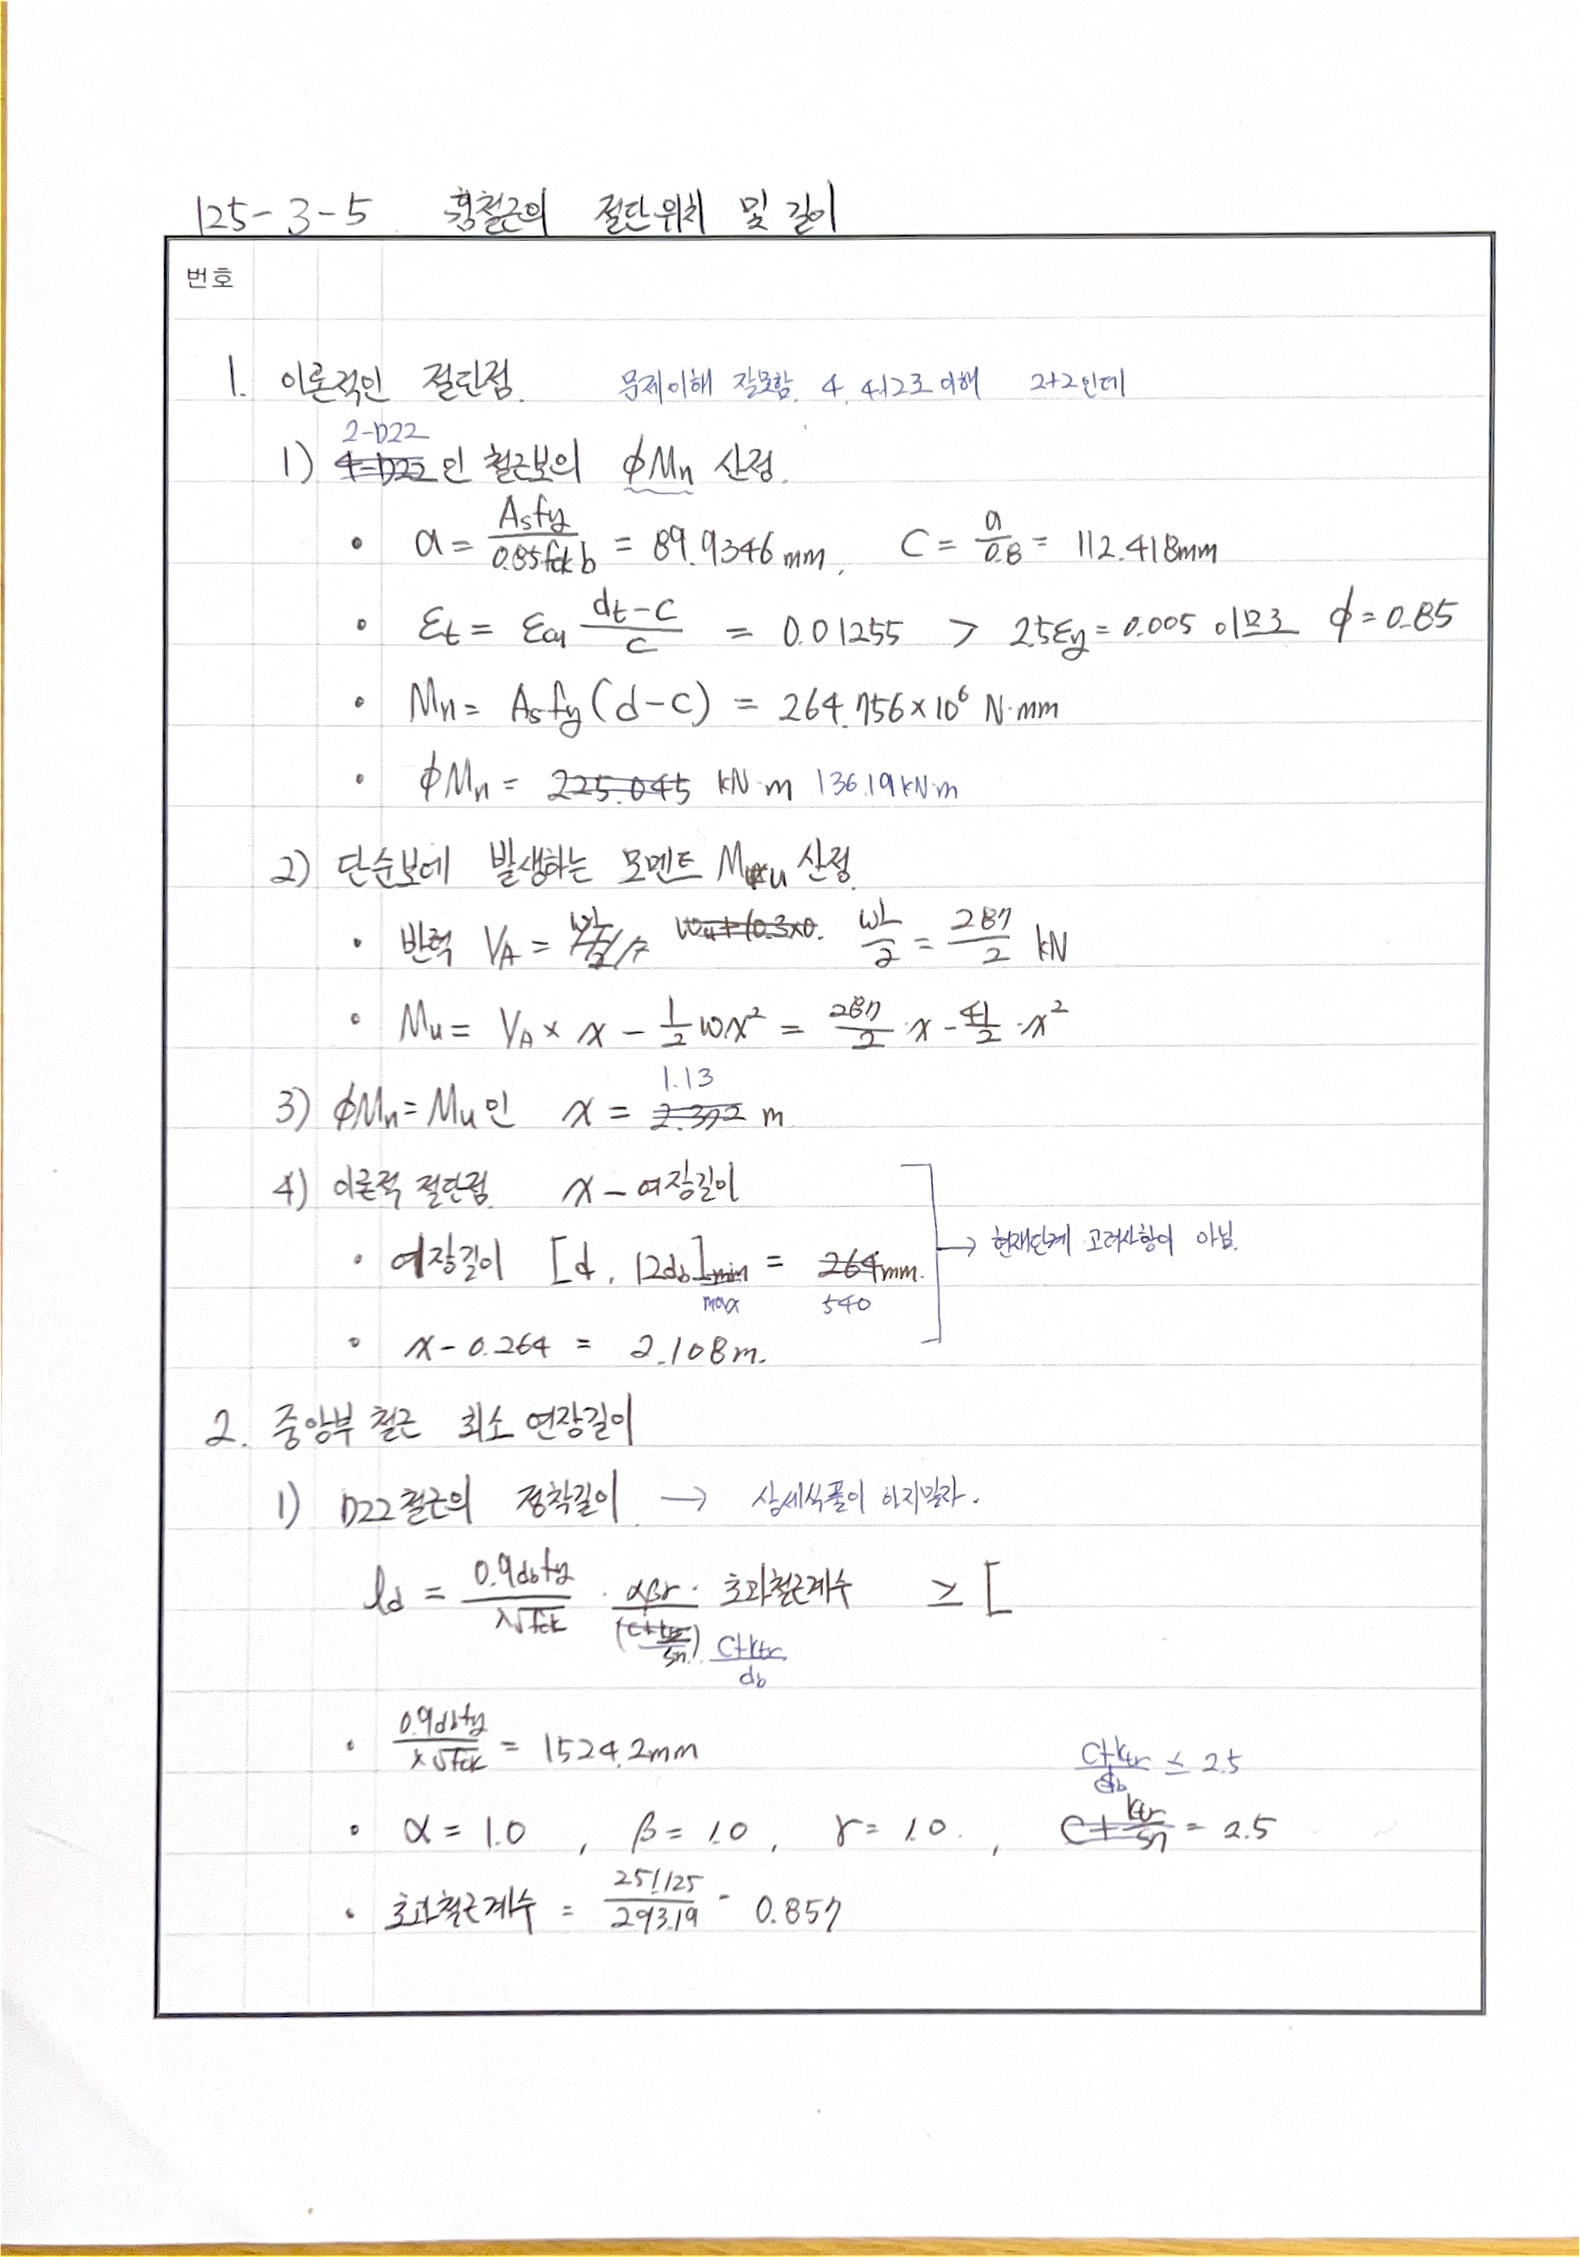 125-3-5 휨철근의 절단위치 및 길이
번호
1. 이론적인 절단점. 문제이해 잘못함. 4, 4.12로 이해 2+2인데
2-D22
1) 4-D22인 철근보의 φMn 산정.
• a = Asfy / 0.85fck b = 89.9346mm, C = a / 0.8 = 112.418mm
• εt = εcu (dt-c) / c = 0.01255 > 2.5εy = 0.005 이므로 φ = 0.85
• Mn = Asfy(d-c) = 264.756×10⁶ N·mm
• φMn = 225.045 kN·m 136.19kN·m
2) 단순보에 발생하는 모멘트 Mu 산정.
• 반력 VA = wL / 2 = 287 / 2 kN
• Mu = VA × x - 1/2 wx² = 287/2 ·x - 41/2 ·x²
1.13
3) φMn = Mu인 x = 2.372 m
4) 이론적 절단점. x - 여장길이
• 여장길이 [d, 12db]min = 264mm. → 현재단계 고려사항이 아님.
max 540
• x - 0.264 = 2.108m.
2. 중앙부 철근 최소 연장길이
1) D22철근의 정착길이 → 상세식풀이 하지말자.
ld = 0.9dbfy / λ√fck · αβγ / (c+ktr/sn) · 초과철근계수 ≥ [
C+ktr / db
• 0.9dbfy / λ√fck = 1524.2mm
C+ktr / db ≤ 2.5
• α = 1.0 , β = 1.0 , γ = 1.0 , C+ktr/sn = 2.5
• 초과철근계수 = 251.125 / 293.19 = 0.857